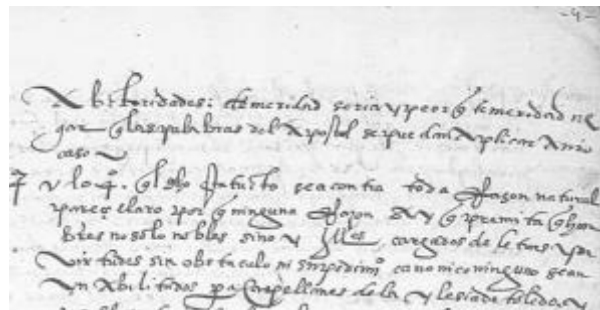 -4-
Abtoridades: temeridad seria y peor q temeridad ne
gar q las palabras del Apostol se puedan Aplicar A nro
caso
y lo q q el dho statuto sea contra toda Razon natural
pareçe claro porq ninguna Razon ay q premita q hon
bres no solo nobles sino y Illes cargados de letras y de
virtudes sin obstaculo ni inpedimo canonico ninguno sean
ynAbilitados pa Capellanes de la yglesia de toledo y